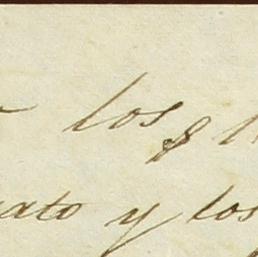 los 8
ato y los